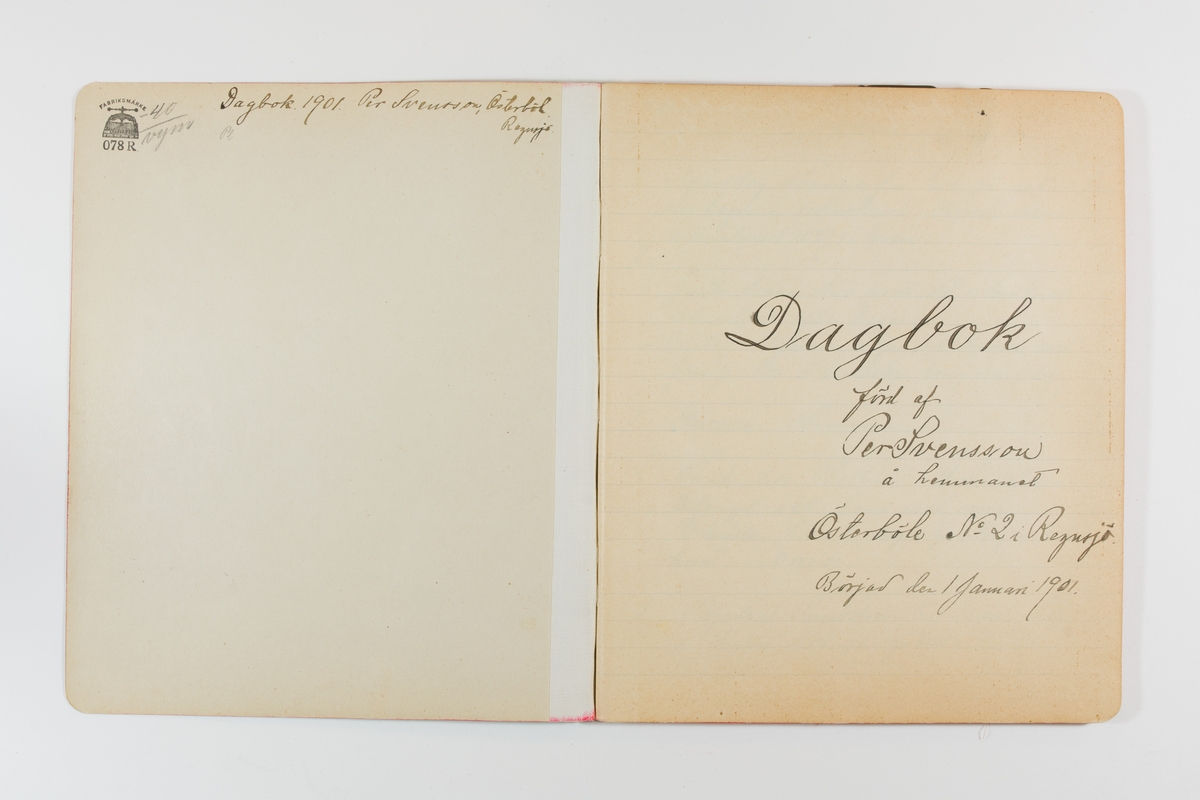 FABRIKSMÄRKE
078 R
40
Dagbok. 1901. Per Svensson, Österböl
Regnsjö
Dagbok
förd af
Per Svensson
å hemmanet
Österböle No 2 i Regnsjö.
Börjad den 1 Januari 1901.